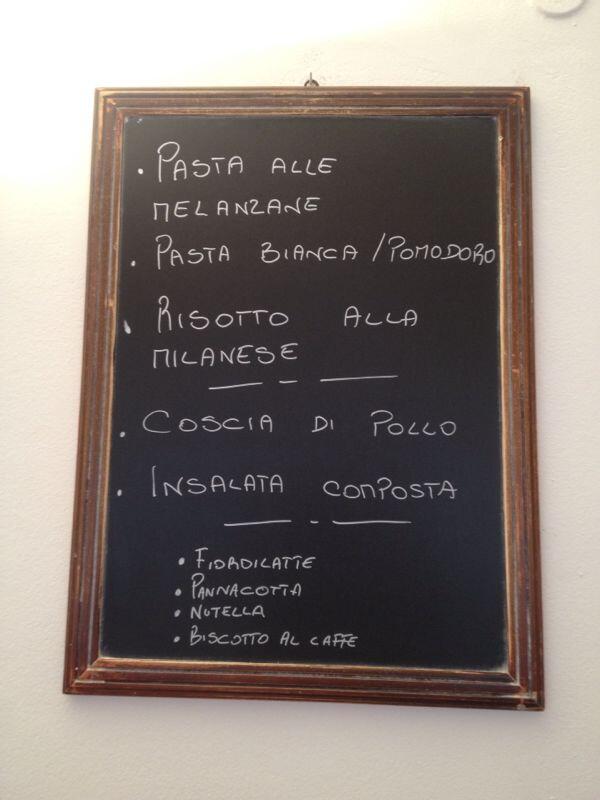 • PASTA ALLE
MELANZANE
• PASTA BIANCA / POMODORO
• RISOTTO ALLA
MILANESE
• COSCIA DI POLLO
• INSALATA COMPOSTA
• FIORDILATTE
• PANNACOTTA
• NUTELLA
• BISCOTTO AL CAFFE